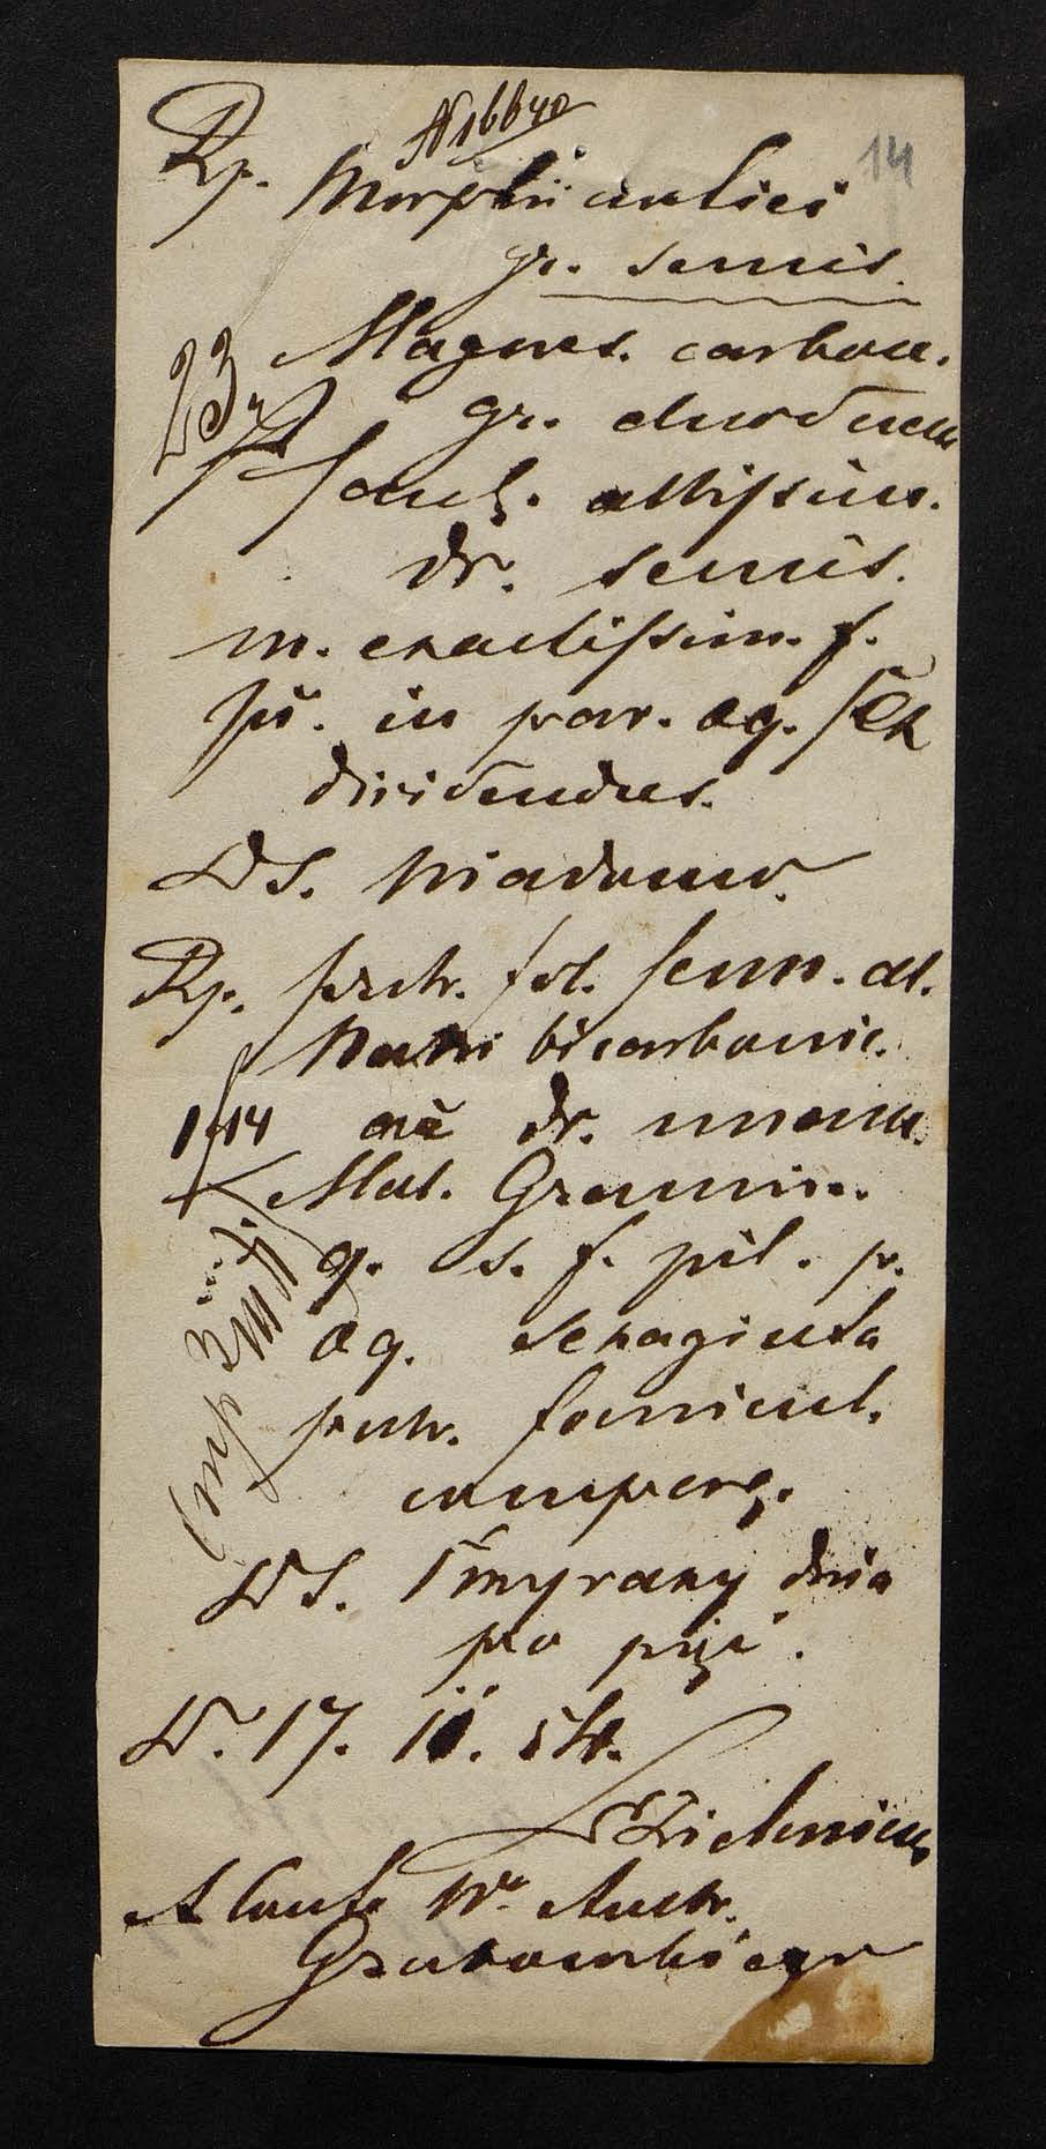 N 16640
14
Rp. Morphii acetici
gr. semis.
Magnes. carbon.
gr. duodecim
Sacch. albissim.
dr. semis.
m. exactissim. f.
pů. in par. æq. sex
dividendus.
DS. Wiadomo.
23
Rp. pulv. fol. senn. al.
Natri bicarbonic.
aa dr. unam.
1/14
Mel. Gramin.
q. s. f. pil. p.
æq. sexaginta
pulv. foenicul.
consperg.
DS. 4 razy dnia
po pięć.
D. 17. II. 54.
A Conto Wo. Andr.
Grabowskiego